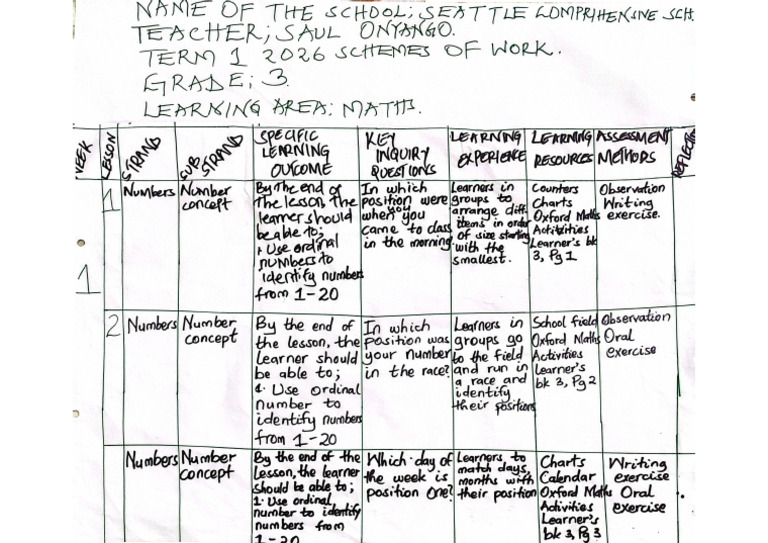 NAME OF THE SCHOOL; SEATTLE COMPRIHENSIVE SCH
TEACHER; SAUL ONYANGO.
TERM 1 2026 SCHEMES OF WORK.
GRADE; 3
LEARNING AREA: MATHS.
WEEK
LESSON
STRAND
SUB STRAND
SPECIFIC
LEARNING
OUTCOME
KEY
INQUIRY
QUESTIONS
LEARNING
EXPERIENCE
LEARNING
RESOURCES
ASSESSMENT
METHODS
REFLECTI
1
1
Numbers
Number
concept
By the end of
the lesson, the
learner should
be able to;
1. Use ordinal
numbers to
identify numbers
from 1-20
In which
position were
you
when you
came to class
in the morning
Learners in
groups to
arrange diff.
items in order
of size starting
with the
smallest.
Counters
Charts
Oxford Maths
Activities
Learner's bk
3, Pg 1
Observation
Writing
exercise.
2
Numbers
Number
concept
By the end of
the lesson, the
learner should
be able to;
1. Use ordinal
number to
identify numbers
from 1-20
In which
position was
your number
in the race?
Learners in
groups go
to the field
and run in
a race and
identify
their positions
School field
Oxford Maths
Activities
Learner's
bk 3, Pg 2
Observation
Oral
exercise
Numbers
Number
concept
By the end of the
lesson, the learner
should be able to;
1. Use ordinal
number to identify
numbers from
1-20
Which day of
the week is
position one?
Learners, to
match days,
months with
their position
Charts
Calendar
Oxford Maths
Activities
Learner's
bk 3, Pg 3
Writing
exercise
Oral
exercise